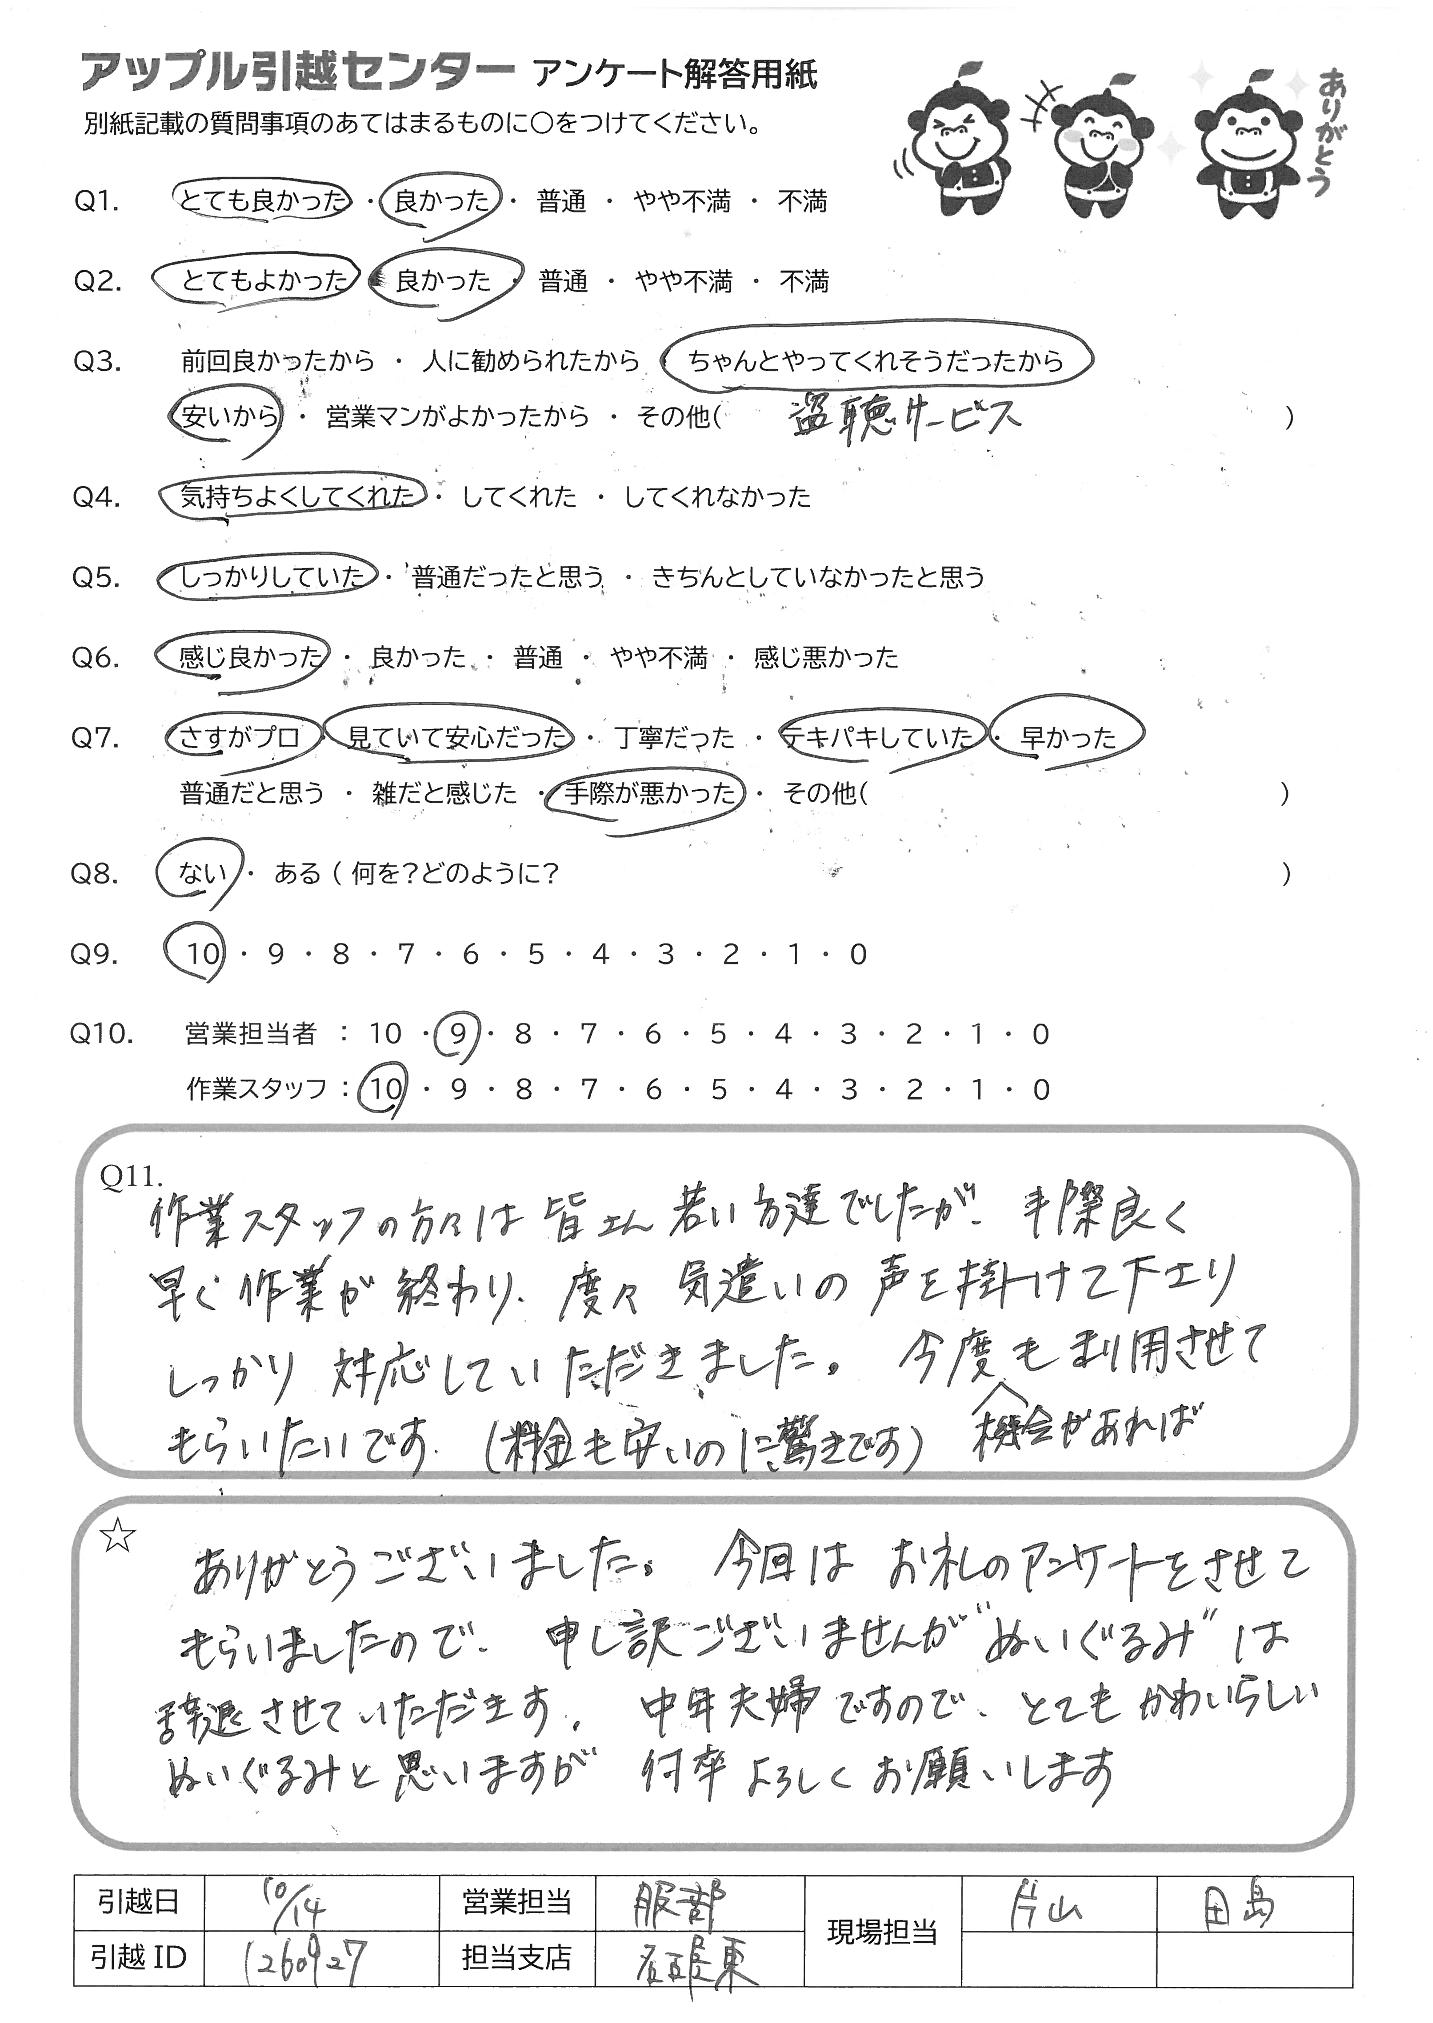 アップル引越センター アンケート解答用紙
別紙記載の質問事項のあてはまるものに○をつけてください。
ありがとう
Q1. とても良かった ・ 良かった ・ 普通 ・ やや不満 ・ 不満
Q2. とてもよかった ・ 良かった ・ 普通 ・ やや不満 ・ 不満
Q3. 前回良かったから ・ 人に勧められたから ・ ちゃんとやってくれそうだったから
安いから ・ 営業マンがよかったから ・ その他( 盗聴サービス )
Q4. 気持ちよくしてくれた ・ してくれた ・ してくれなかった
Q5. しっかりしていた ・ 普通だったと思う ・ きちんとしていなかったと思う
Q6. 感じ良かった ・ 良かった ・ 普通 ・ やや不満 ・ 感じ悪かった
Q7. さすがプロ ・ 見ていて安心だった ・ 丁寧だった ・ テキパキしていた ・ 早かった
普通だと思う ・ 雑だと感じた ・ 手際が悪かった ・ その他( )
Q8. ない ・ ある ( 何を?どのように? )
Q9. 10 ・ 9 ・ 8 ・ 7 ・ 6 ・ 5 ・ 4 ・ 3 ・ 2 ・ 1 ・ 0
Q10. 営業担当者 : 10 ・ 9 ・ 8 ・ 7 ・ 6 ・ 5 ・ 4 ・ 3 ・ 2 ・ 1 ・ 0
作業スタッフ : 10 ・ 9 ・ 8 ・ 7 ・ 6 ・ 5 ・ 4 ・ 3 ・ 2 ・ 1 ・ 0
Q11.
作業スタッフの方々は皆さん若い方達でしたが、手際良く
早く作業が終わり、度々気遣いの声を掛けて下さり
しっかり対応していただきました。今度も利用させて
もらいたいです。(料金も安いのに驚きです) 機会があれば
☆
ありがとうございました。今回はお礼のアンケートをさせて
もらいましたので、申し訳ございませんが"ぬいぐるみ"は
辞退させていただきます。中年夫婦ですので、とてもかわいらしい
ぬいぐるみと思いますが何卒よろしくお願いします
引越日 10/14 営業担当 服部 現場担当 片山 田島
引越 ID 1260927 担当支店 名古屋東